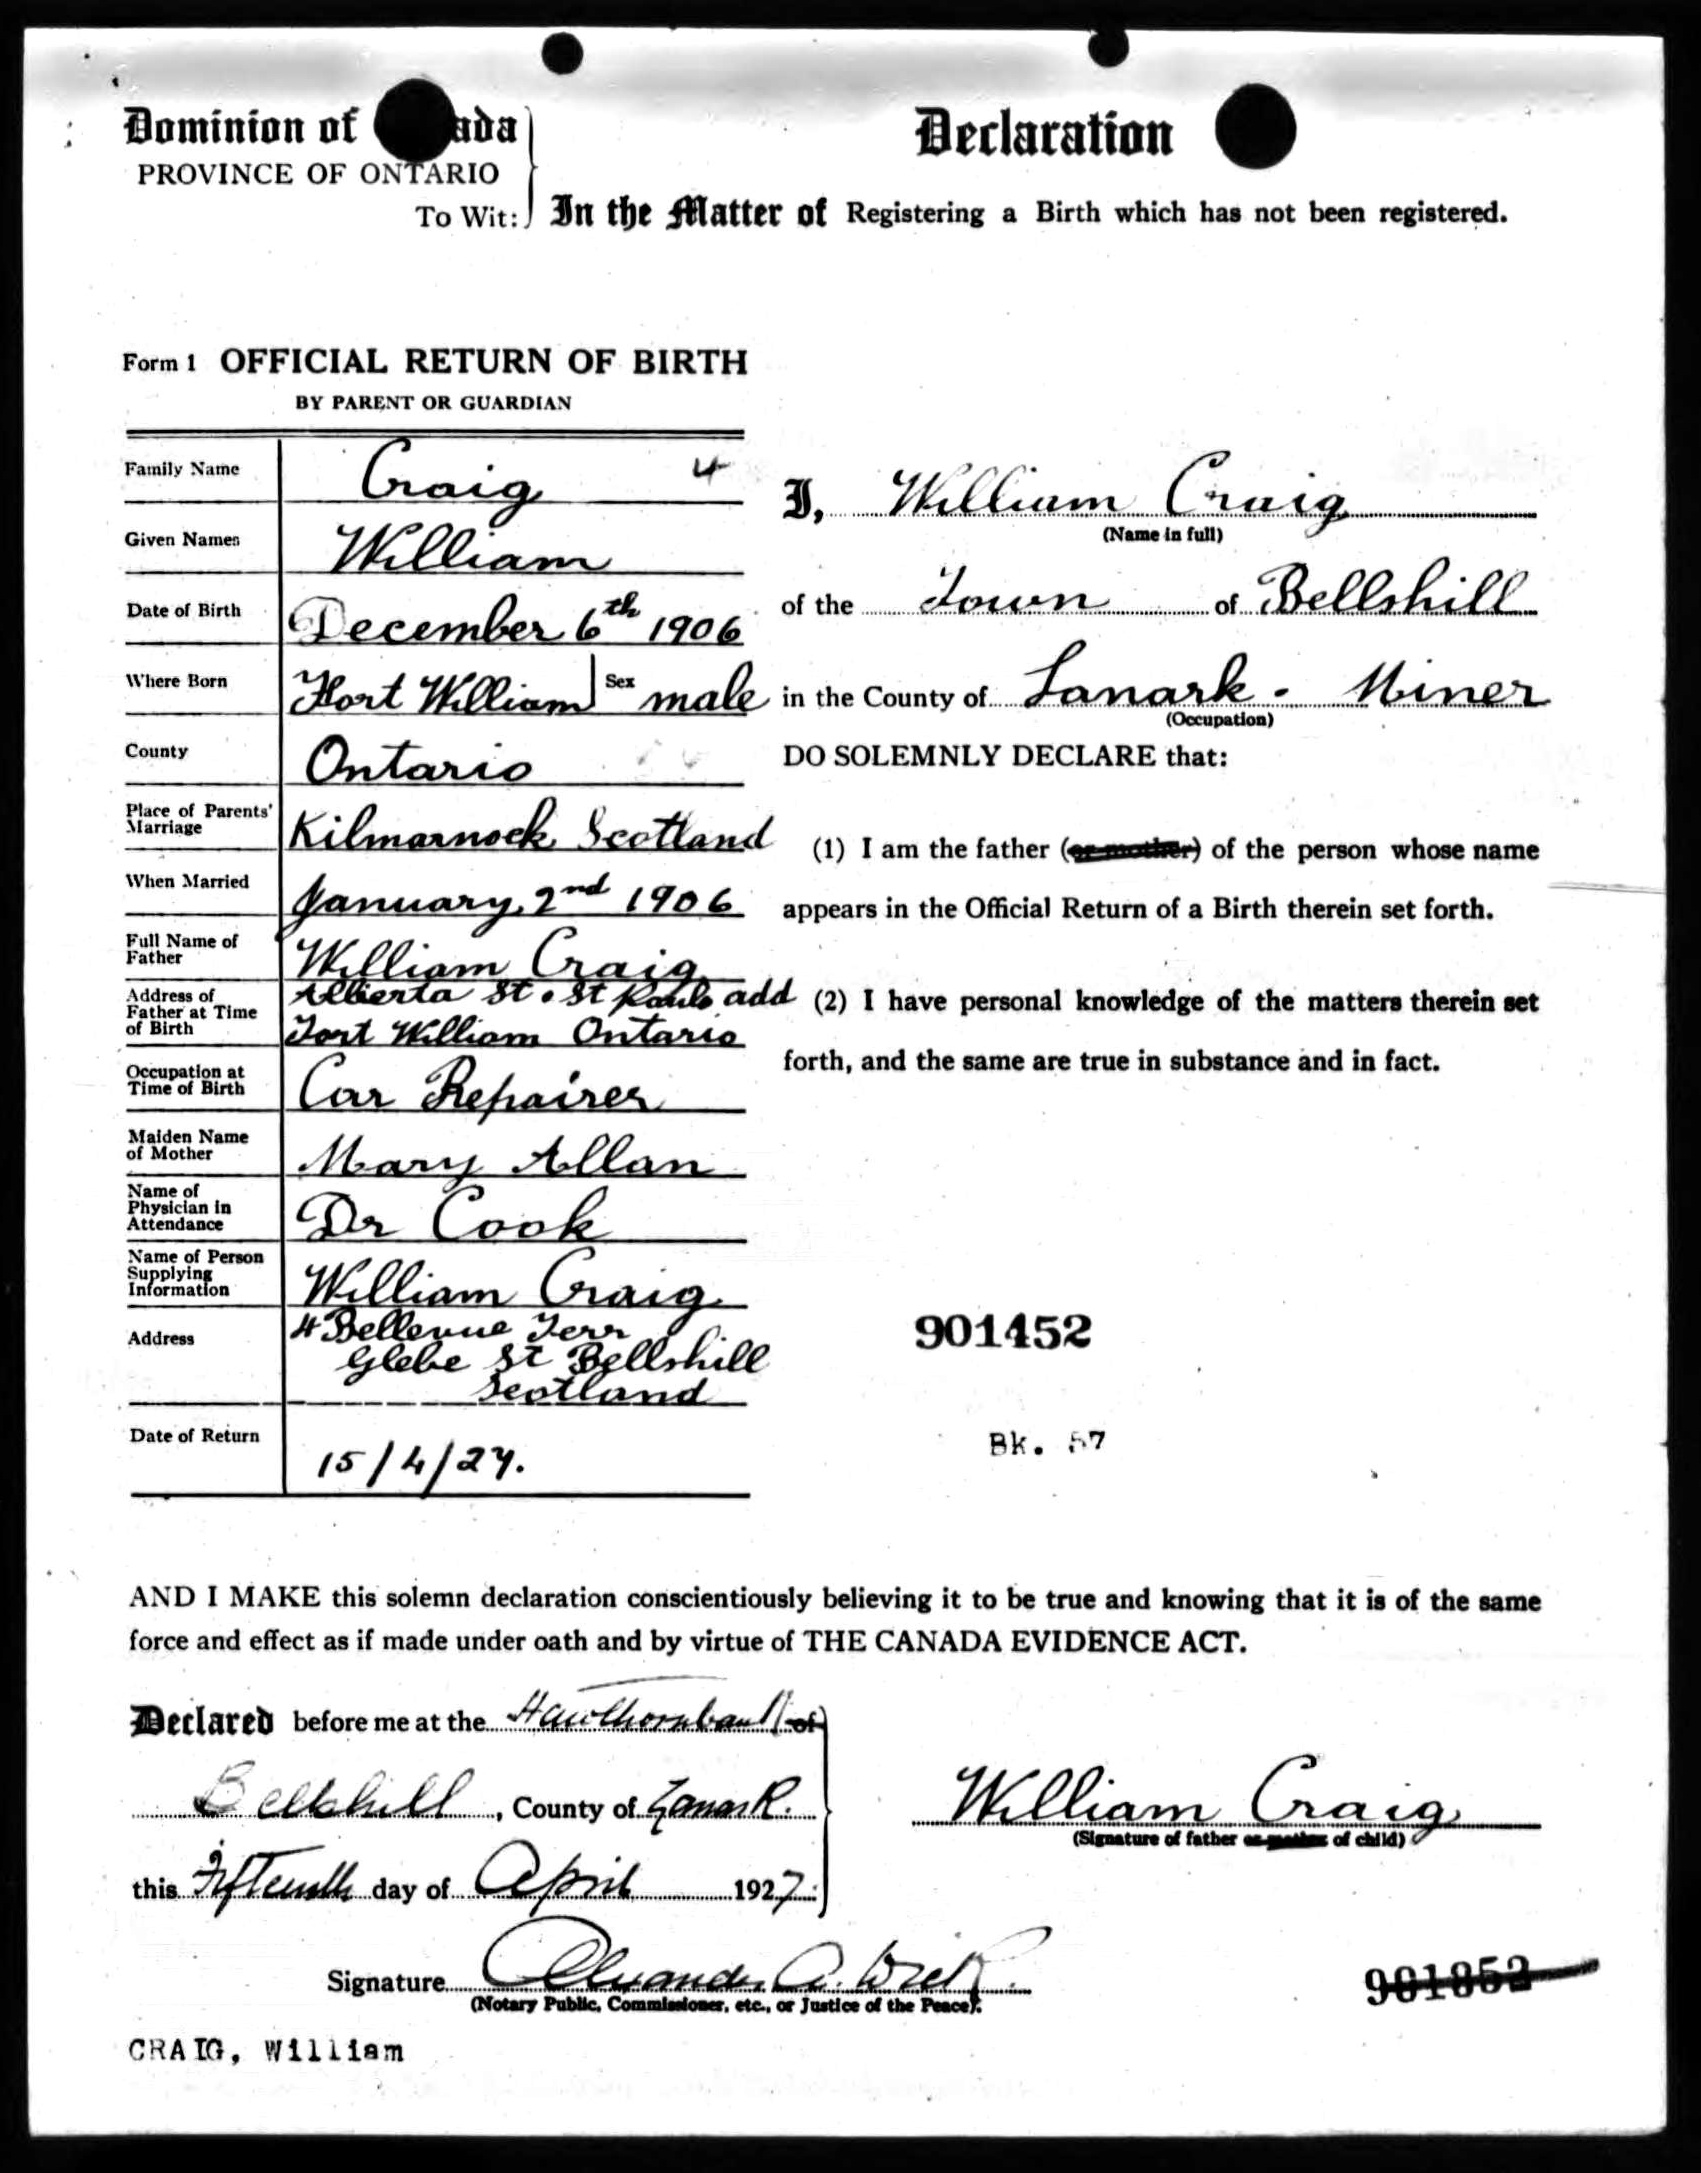 Dominion of ada
PROVINCE OF ONTARIO
To Wit:
Declaration
In the Matter of Registering a Birth which has not been registered.
Form 1 OFFICIAL RETURN OF BIRTH
BY PARENT OR GUARDIAN
Family Name Craig 4
Given Names William
Date of Birth December 6th 1906
Where Born Fort William Sex male
County Ontario
Place of Parents' Marriage Kilmarnock Scotland
When Married January 2nd 1906
Full Name of Father William Craig
Address of Father at Time of Birth Alberta St. St Pauls add
Fort William Ontario
Occupation at Time of Birth Car Repairer
Maiden Name of Mother Mary Allan
Name of Physician in Attendance Dr Cook
Name of Person Supplying Information William Craig
Address 4 Bellevue Terr
Glebe St Bellshill
Scotland
Date of Return 15/4/27.
I, William Craig
(Name in full)
of the Town of Bellshill
in the County of Lanark. Miner
(Occupation)
DO SOLEMNLY DECLARE that:
(1) I am the father (or mother) of the person whose name
appears in the Official Return of a Birth therein set forth.
(2) I have personal knowledge of the matters therein set
forth, and the same are true in substance and in fact.
901452
Bk. 57
AND I MAKE this solemn declaration conscientiously believing it to be true and knowing that it is of the same
force and effect as if made under oath and by virtue of THE CANADA EVIDENCE ACT.
Declared before me at the Hawthornbank of
Bellshill, County of Lanark.
this Fifteenth day of April 1927.
William Craig
(Signature of father or mother of child)
Signature Alexander A.
(Notary Public, Commissioner, etc., or Justice of the Peace).
901852
CRAIG, William